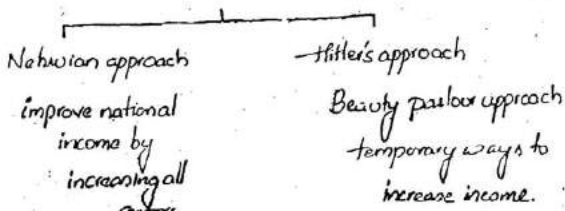 Nehruian approach
improve national
income by
increasing all
Hitler's approach
Beauty parlour approach
temporary ways to
increase income.